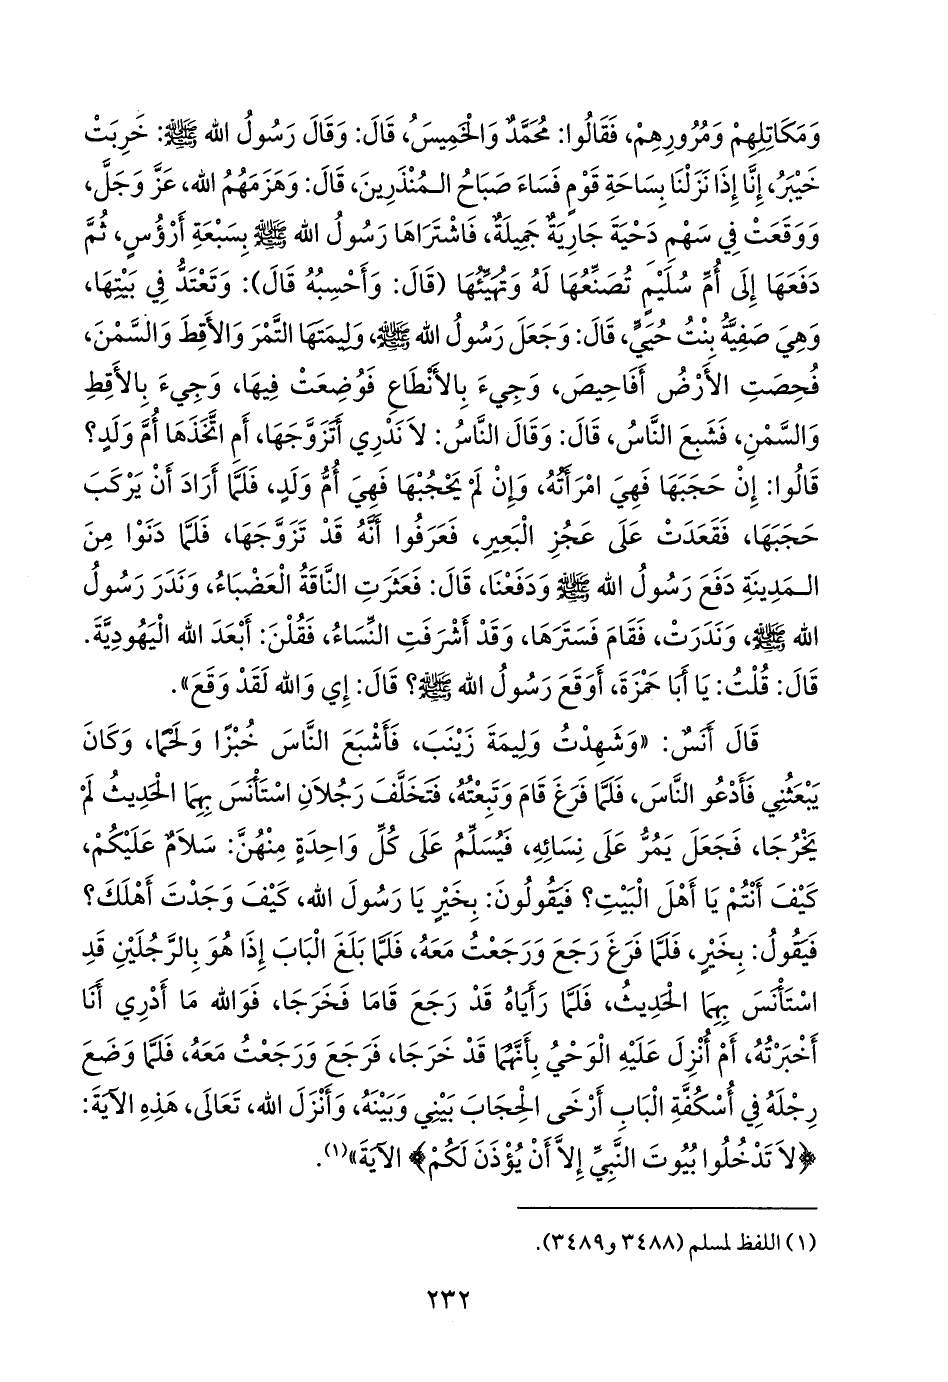 وَمَكَاتِلِهِمْ وَمُرُورِهِمْ، فَقَالُوا: مُحَمَّدٌ وَالْخَمِيسُ، قَالَ: وَقَالَ رَسُولُ الله ﷺ: خَرِبَتْ
خَيْبَرُ، إِنَّا إِذَا نَزَلْنَا بِسَاحَةِ قَوْمٍ فَسَاءَ صَبَاحُ الـمُنْذَرِينَ، قَالَ: وَهَزَمَهُمُ الله، عَزَّ وَجَلَّ،
وَوَقَعَتْ فِي سَهْمِ دَحْيَةَ جَارِيَةٌ جَمِيلَةٌ، فَاشْتَرَاهَا رَسُولُ الله ﷺ بِسَبْعَةِ أَرْؤُسٍ، ثُمَّ
دَفَعَهَا إِلَى أُمِّ سُلَيْمٍ تُصَنِّعُهَا لَهُ وَتُهَيِّئُهَا (قَالَ: وَأَحْسِبُهُ قَالَ): وَتَعْتَدُّ فِي بَيْتِهَا،
وَهِيَ صَفِيَّةُ بِنْتُ حُيَيٍّ، قَالَ: وَجَعَلَ رَسُولُ الله ﷺ، وَلِيمَتَهَا التَّمْرَ وَالأَقِطَ وَالسَّمْنَ،
فُحِصَتِ الأَرْضُ أَفَاحِيصَ، وَجِيءَ بِالأَنْطَاعِ فَوُضِعَتْ فِيهَا، وَجِيءَ بِالأَقِطِ
وَالسَّمْنِ، فَشَبِعَ النَّاسُ، قَالَ: وَقَالَ النَّاسُ: لاَ نَدْرِي أَتَزَوَّجَهَا، أَمِ اتَّخَذَهَا أُمَّ وَلَدٍ؟
قَالُوا: إِنْ حَجَبَهَا فَهِيَ امْرَأَتُهُ، وَإِنْ لَمْ يَحْجُبْهَا فَهِيَ أُمُّ وَلَدٍ، فَلَمَّا أَرَادَ أَنْ يَرْكَبَ
حَجَبَهَا، فَقَعَدَتْ عَلَى عَجُزِ الْبَعِيرِ، فَعَرَفُوا أَنَّهُ قَدْ تَزَوَّجَهَا، فَلَمَّا دَنَوْا مِنَ
الـمَدِينَةِ دَفَعَ رَسُولُ الله ﷺ وَدَفَعْنَا، قَالَ: فَعَثَرَتِ النَّاقَةُ الْعَضْبَاءُ، وَنَدَرَ رَسُولُ
الله ﷺ، وَنَدَرَتْ، فَقَامَ فَسَتَرَهَا، وَقَدْ أَشْرَفَتِ النِّسَاءُ، فَقُلْنَ: أَبْعَدَ الله الْيَهُودِيَّةَ.
قَالَ: قُلْتُ: يَا أَبَا حَمْزَةَ، أَوَقَعَ رَسُولُ الله ﷺ؟ قَالَ: إِي وَالله لَقَدْ وَقَعَ».
قَالَ أَنَسٌ: «وَشَهِدْتُ وَلِيمَةَ زَيْنَبَ، فَأَشْبَعَ النَّاسَ خُبْزًا وَلَحْمًا، وَكَانَ
يَبْعَثُنِي فَأَدْعُو النَّاسَ، فَلَمَّا فَرَغَ قَامَ وَتَبِعْتُهُ، فَتَخَلَّفَ رَجُلاَنِ اسْتَأْنَسَ بِهِمَا الْحَدِيثُ لَمْ
يَخْرُجَا، فَجَعَلَ يَمُرُّ عَلَى نِسَائِهِ، فَيُسَلِّمُ عَلَى كُلِّ وَاحِدَةٍ مِنْهُنَّ: سَلاَمٌ عَلَيْكُمْ،
كَيْفَ أَنْتُمْ يَا أَهْلَ الْبَيْتِ؟ فَيَقُولُونَ: بِخَيْرٍ يَا رَسُولَ الله، كَيْفَ وَجَدْتَ أَهْلَكَ؟
فَيَقُولُ: بِخَيْرٍ، فَلَمَّا فَرَغَ رَجَعَ وَرَجَعْتُ مَعَهُ، فَلَمَّا بَلَغَ الْبَابَ إِذَا هُوَ بِالرَّجُلَيْنِ قَدِ
اسْتَأْنَسَ بِهِمَا الْحَدِيثُ، فَلَمَّا رَأَيَاهُ قَدْ رَجَعَ قَامَا فَخَرَجَا، فَوَالله مَا أَدْرِي أَنَا
أَخْبَرْتُهُ، أَمْ أُنْزِلَ عَلَيْهِ الْوَحْيُ بِأَنَّهُمَا قَدْ خَرَجَا، فَرَجَعَ وَرَجَعْتُ مَعَهُ، فَلَمَّا وَضَعَ
رِجْلَهُ فِي أُسْكُفَّةِ الْبَابِ أَرْخَى الْحِجَابَ بَيْنِي وَبَيْنَهُ، وَأَنْزَلَ الله، تَعَالَى، هَذِهِ الآيَةَ:
﴿لاَ تَدْخُلُوا بُيُوتَ النَّبِيِّ إِلاَّ أَنْ يُؤْذَنَ لَكُمْ﴾ الآيَةَ»(١).
(١) اللفظ لمسلم (٣٤٨٨ و٣٤٨٩).
٢٣٢